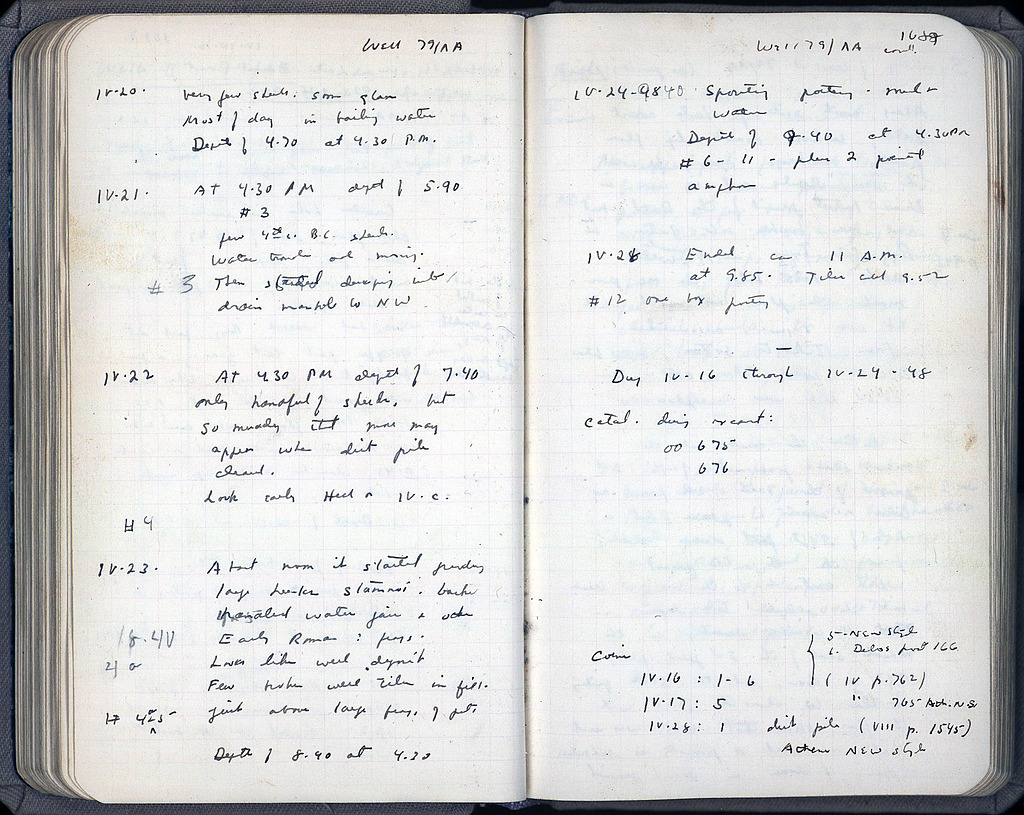 Well 79/AA
IV.20. very few sherds. some glass
Most of day in bailing water
Depth of 4.70 at 4.30 P.M.
IV.21. At 4.30 PM depth of 5.90
# 3
few 4th c. B.C. sherds.
Water trouble all morning.
# 3 Then started dumping into
drain manhole to NW.
IV.22 At 4.30 PM depth of 7.40
only handful of sherds, but
so muddy that more may
appear when dirt pile
cleaned.
Look early Hell or IV.c.
# 4
IV.23. About noon it started
large
water jars & other
18.40 Early Roman : frags.
Looks like well deposit
Few broken well tiles in fill.
# 4 or 5 just above large frags. of pots
Depth of 8.40 at 4.30
Well 79/AA cont. 1689
IV.24 - 840 pottery.
water
Depth of 9.40 at 4.30 PM
# 6 - 11 - plus 2
amphora
IV.28 Ended ca 11 A.M.
at 9.85. Tiles 9.52
# 12 one box pottery
—
Dug IV.16 through IV.24 - 48
catal. :
OO 675
676
5 - New Style
1. Delos 166
Coins
IV.16 : 1-6 (IV p.762)
IV.17 : 5 " 765 Ath. N.S.
IV.28 : 1 dirt pile (VIII p. 1545)
Athens New Style